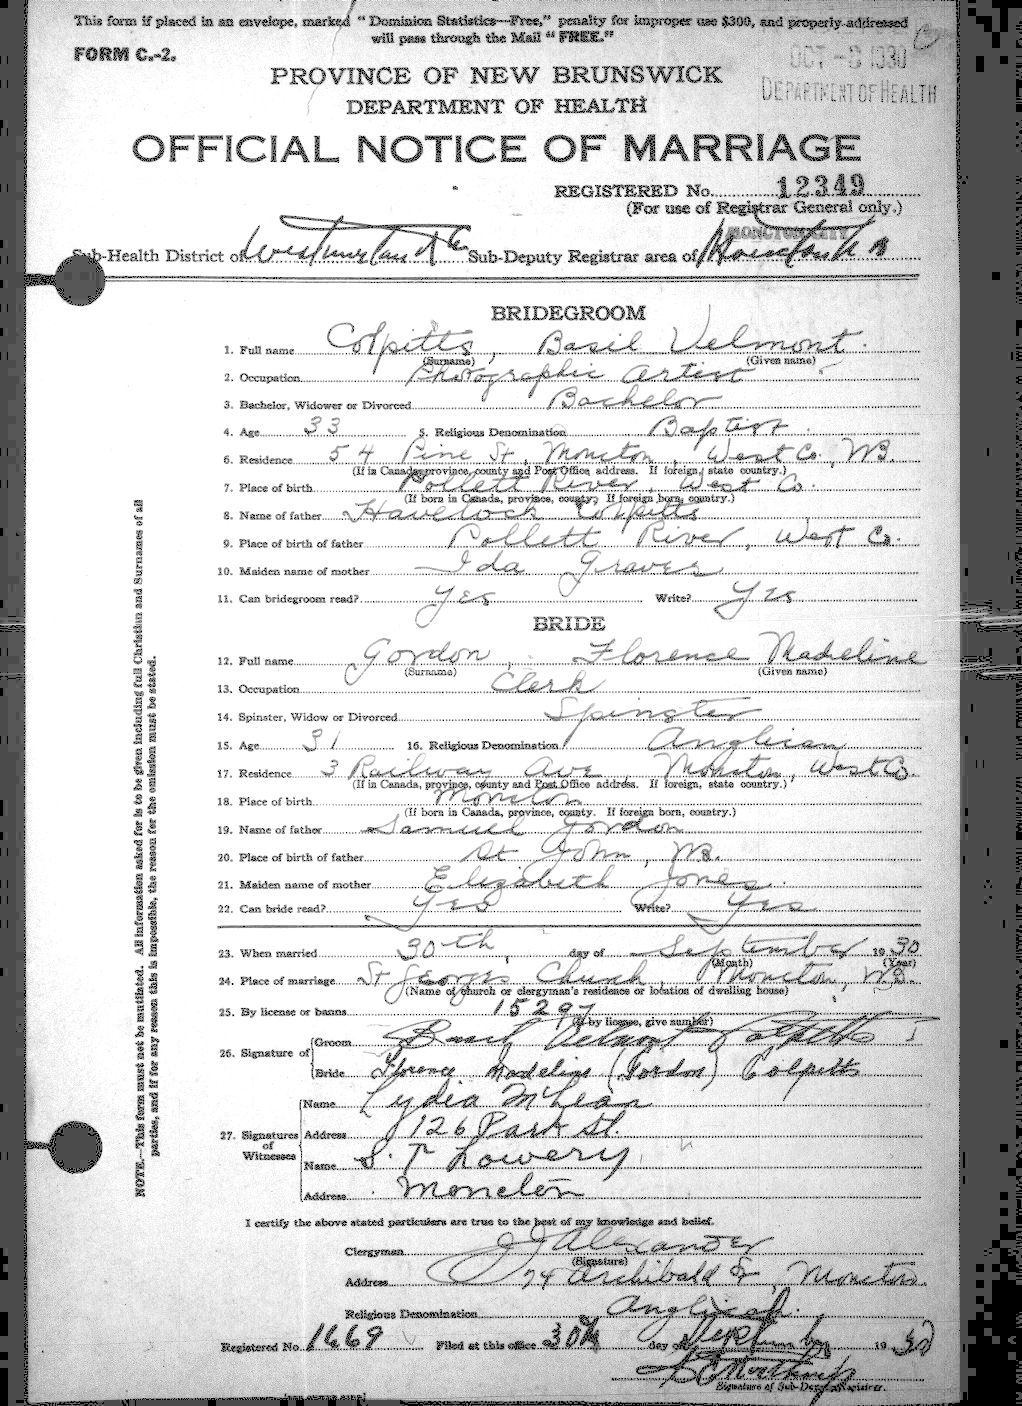 This form if placed in an envelope, marked "Dominion Statistics—Free," penalty for improper use $300, and properly addressed
will pass through the Mail "FREE."
FORM C.-2.
OCT - 1930
DEPARTMENT OF HEALTH
PROVINCE OF NEW BRUNSWICK
DEPARTMENT OF HEALTH
OFFICIAL NOTICE OF MARRIAGE
REGISTERED No. 12349
(For use of Registrar General only.)
MONCTON CITY
Sub-Health District of Westmorland Co Sub-Deputy Registrar area of Moncton
BRIDEGROOM
1. Full name Colpitts, Basil Velmont.
(Surname) (Given name)
2. Occupation Photographic Artist
3. Bachelor, Widower or Divorced Bachelor
4. Age 33 5. Religious Denomination Baptist.
6. Residence 54 Pine St, Moncton, West Co., N.B.
(If in Canada, province, county and Post Office address. If foreign, state country.)
7. Place of birth Pollett River, West Co.
(If born in Canada, province, county. If foreign born, country.)
8. Name of father Havelock Colpitts
9. Place of birth of father Pollett River, West Co.
10. Maiden name of mother Ida Graves
11. Can bridegroom read? Yes Write? Yes
BRIDE
12. Full name Gordon, Florence Madeline
(Surname) (Given name)
13. Occupation Clerk
14. Spinster, Widow or Divorced Spinster
15. Age 31 16. Religious Denomination Anglican
17. Residence 3 Railway Ave, Moncton, West Co.
(If in Canada, province, county and Post Office address. If foreign, state country.)
18. Place of birth Moncton
(If born in Canada, province, county. If foreign born, country.)
19. Name of father Samuel Gordon
20. Place of birth of father St John, N.B.
21. Maiden name of mother Elizabeth Jones.
22. Can bride read? Yes Write? Yes
23. When married 30th, day of September 1930
(Month) (Year)
24. Place of marriage St Georges Church, Moncton, N.B.
(Name of church or clergyman's residence or location of dwelling house)
25. By license or banns 15297
(If by license, give number)
26. Signature of Groom Basil Velmont Colpitts
Bride Florence Madeline (Gordon) Colpitts
27. Signatures of Witnesses
Name Lydia McLean
Address 126 Park St.
Name S. T Lowery
Address Moncton
I certify the above stated particulars are true to the best of my knowledge and belief.
Clergyman J J Alexander
(Signature)
Address 74 Archibald St, Moncton.
Religious Denomination Anglican.
Registered No. 1669 Filed at this office 30th day of September 1930
Signature of Sub-Deputy Registrar.
NOTE.—This form must not be mutilated. All information asked for is to be given including full Christian and Surnames of all
parties, and if for any reason this is impossible, the reason for the omission must be stated.